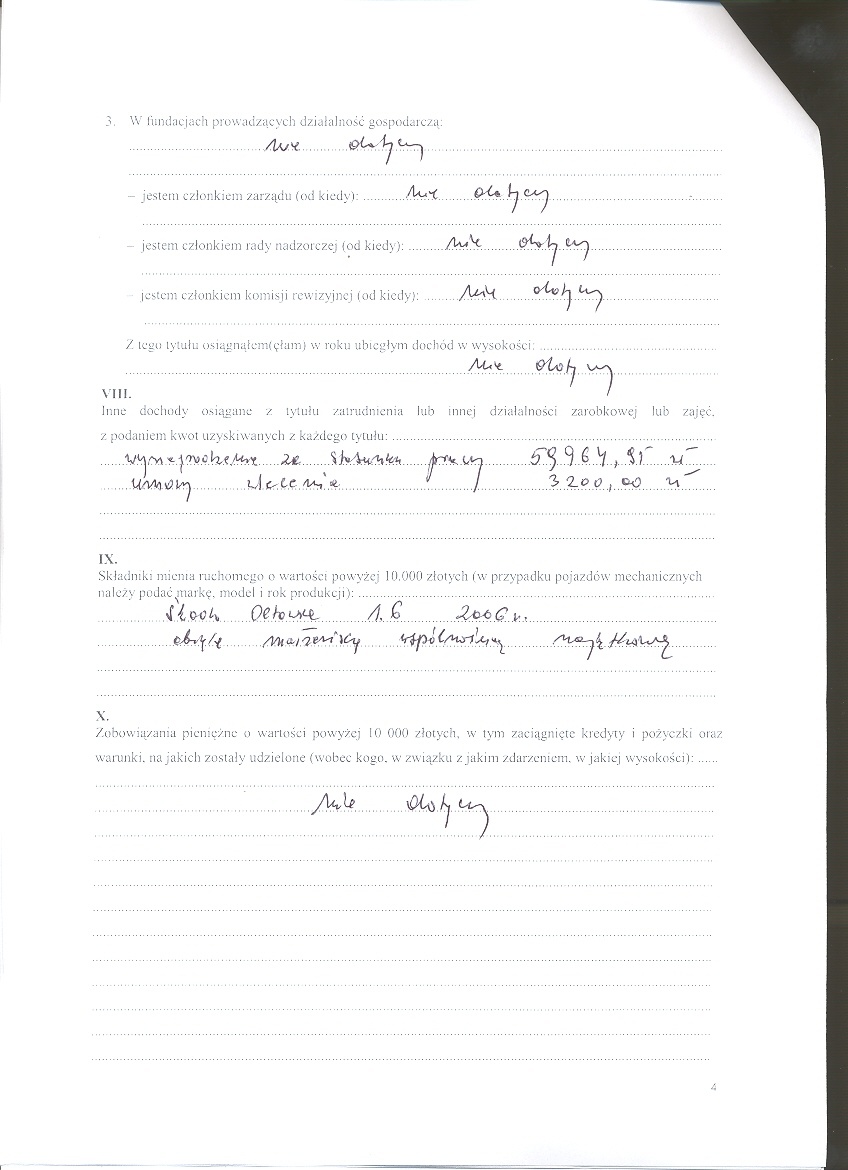 3. W fundacjach prowadzących działalność gospodarczą:
nie dotyczy
– jestem członkiem zarządu (od kiedy): nie dotyczy
– jestem członkiem rady nadzorczej (od kiedy): nie dotyczy
– jestem członkiem komisji rewizyjnej (od kiedy): nie dotyczy
Z tego tytułu osiągnąłem(ęłam) w roku ubiegłym dochód w wysokości:
nie dotyczy
VIII.
Inne dochody osiągane z tytułu zatrudnienia lub innej działalności zarobkowej lub zajęć,
z podaniem kwot uzyskiwanych z każdego tytułu:
wynagrodzenie ze stosunku pracy 59964,91 zł
umowy zlecenia 3200,00 zł
IX.
Składniki mienia ruchomego o wartości powyżej 10.000 złotych (w przypadku pojazdów mechanicznych
należy podać markę, model i rok produkcji):
Skoda Octavia 1.6 2006 r.
objęte małżeńską współwłasn. majątkową
X.
Zobowiązania pieniężne o wartości powyżej 10 000 złotych, w tym zaciągnięte kredyty i pożyczki oraz
warunki, na jakich zostały udzielone (wobec kogo, w związku z jakim zdarzeniem, w jakiej wysokości):
nie dotyczy
4